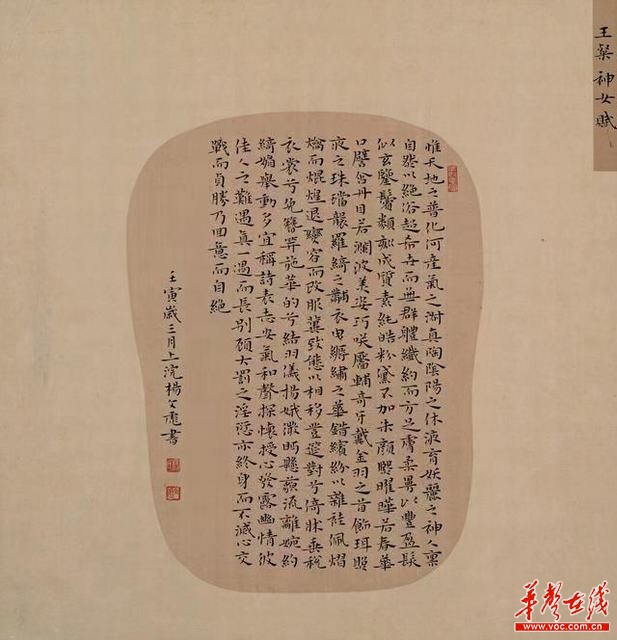 王粲神女賦
惟天地之普化何產氣之淑真陶陰陽之休液育妖麗之神人稟
自然以絕俗超希世而無群體纖約而方足膚柔曼以豐盈髮
似玄鑒鬢類刻成質素純皓粉黛不加朱顏熙曜曄若春華
口譬含丹目若瀾波美姿巧笑靨輔奇牙戴金羽之首飾珥照
夜之珠璫襲羅綺之黼衣曳縟繡之華錯繽紛以雜袿佩熠
爚而焜煌退變容而改服冀致態以相移登筵對兮倚牀垂稅
衣裳兮免簪笄施華的兮結羽儀揚娥微眄懸藐流離婉約
綺媚舉動多宜稱詩表志安氣和聲探懷授心發露幽情彼
佳人之難遇真一遇而長別顧大罰之淫愆亦終身而不滅心交
戰而貞勝乃回意而自絕
壬寅歲三月上浣楊書
华声在线
www.voc.com.cn